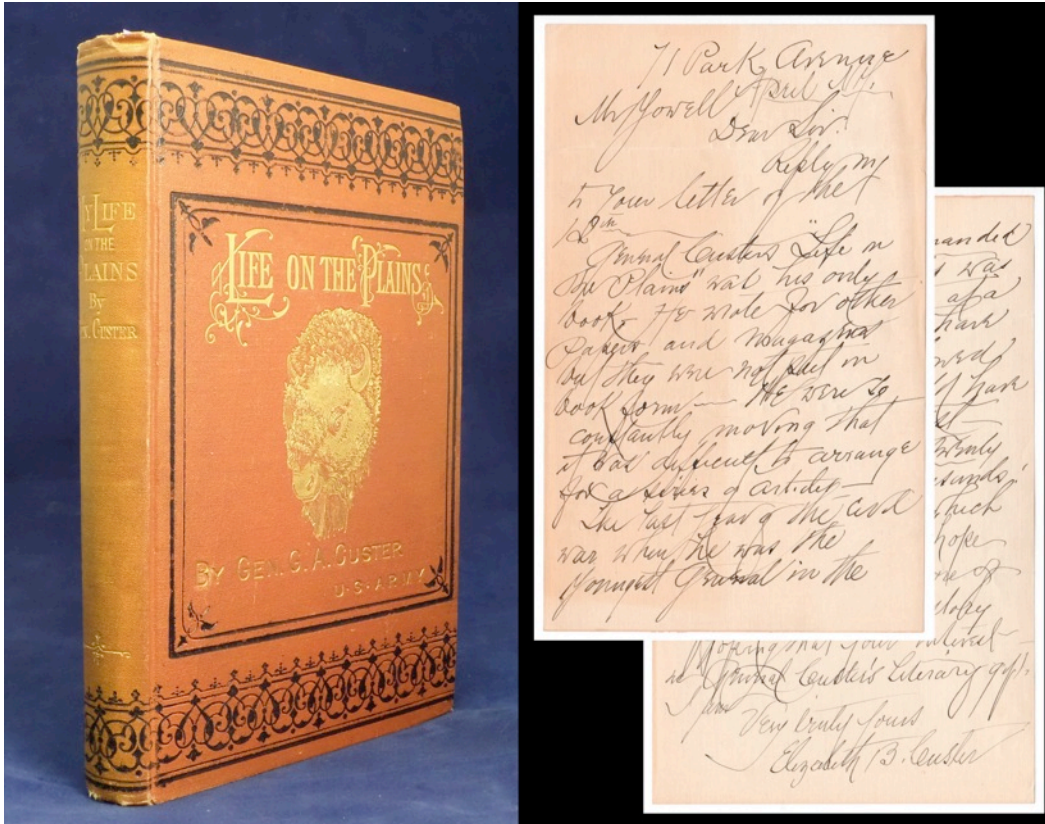 MY LIFE
ON THE
PLAINS
BY
GEN. CUSTER
LIFE ON THE PLAINS
BY GEN. G. A. CUSTER
U. S. ARMY
71 Park Avenue
April
Mr
Dear Sir:
Reply
to your letter of the
General Custer's "Life on
the Plains" was his only
book. He wrote for other
papers and magazines
but they were not put in
book form — We were so
constantly moving that
it was difficult to arrange
for a series of articles —
The last year of the civil
war when he was the
youngest General in the
was
at a
have
have
which
hope
Hoping that your interest
in General Custer's literary
I am
Very truly yours
Elizabeth B. Custer